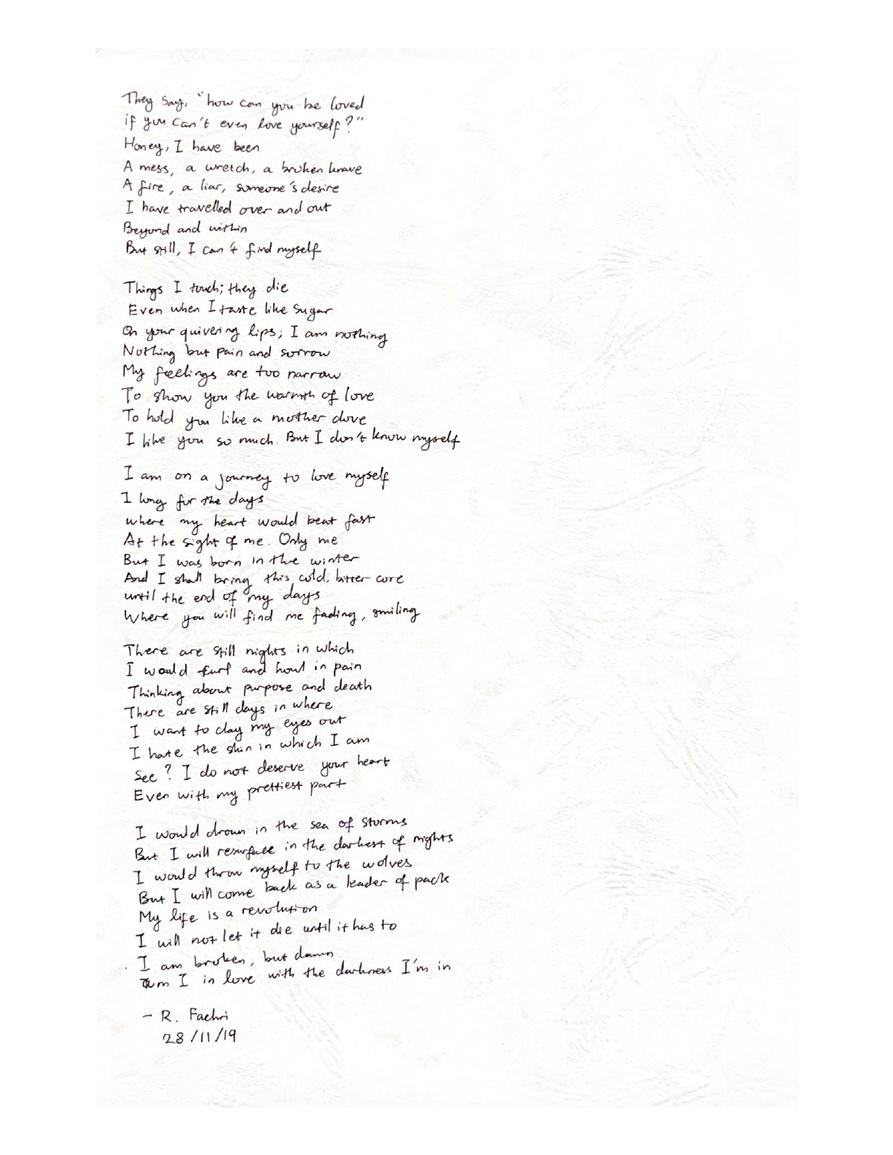 They say, "how can you be loved
if you can't even love yourself?"
Honey, I have been
A mess, a wretch, a broken knave
A fire, a liar, someone's desire
I have travelled over and out
Beyond and within
But still, I can't find myself
Things I touch; they die
Even when I taste like sugar
On your quivering lips; I am nothing
Nothing but pain and sorrow
My feelings are too narrow
To show you the warmth of love
To hold you like a mother dove
I like you so much. But I don't know myself
I am on a journey to love myself
I long for the days
where my heart would beat fast
At the sight of me. Only me
But I was born in the winter
And I shall bring this cold, bitter core
until the end of my days
Where you will find me fading, smiling
There are still nights in which
I would and howl in pain
Thinking about purpose and death
There are still days in where
I want to clay my eyes out
I hate the skin in which I am
See? I do not deserve your heart
Even with my prettiest part
I would drown in the sea of storms
But I will resurface in the darkest of nights
I would throw myself to the wolves
But I will come back as a leader of pack
My life is a revolution
I will not let it die until it has to
I am broken, but damn
Am I in love with the darkness I'm in
- R. Fachri
28/11/19